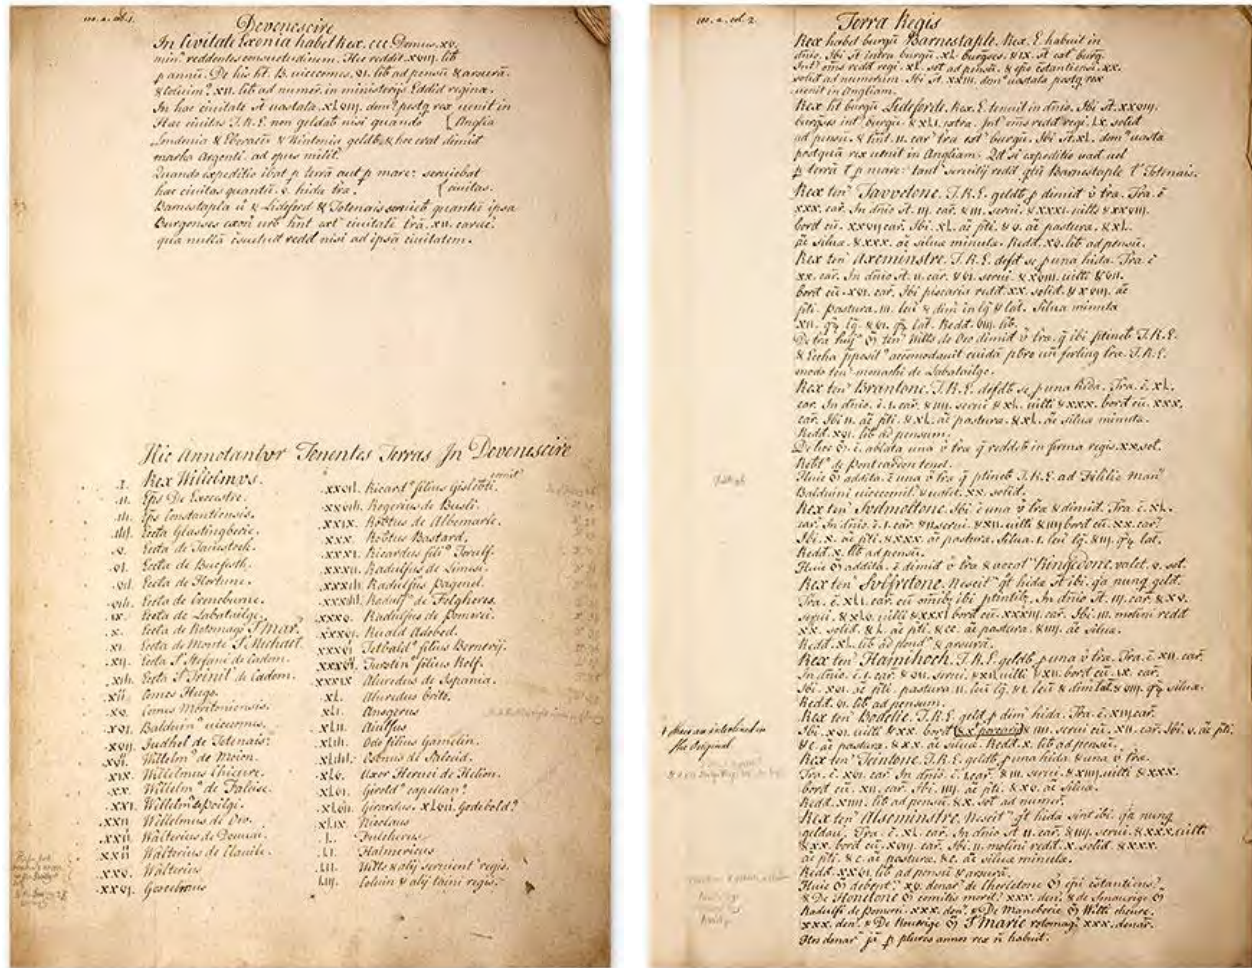 Devenescire
In Civitate Exonia habet Rex. ccc Domus. xv.
min' reddentes consuetudinem. Hec reddit xviij. lib
p annū. De his ht. B. uicecomes. vi. lib ad pensū & arsurā.
& Coluin? xii. lib ad numer. in ministerijs Eddid reginæ.
In hac ciuitate st uastatæ. xlviij. dom? postq rex uenit in
Hæc ciuitas T.R.E. non geldab nisi quando Anglia
Lundonia & Eboracū & Wintonia geldb. & hoc erat dimid
marka Argenti. ad opus milit?
Quando expeditio ibat p terrā aut p mare: seruiebat
hæc ciuitas quantū. v. hidæ tra. ciuitas.
Barnestapla ū & Lideford & Totenais seruieb quantū ipsa
Burgenses exon urb hnt ext ciuitatē trā. xii. caruc.
quæ nullā csuetud redd nisi ad ipsā ciuitatem.
Hic Annotantvr Tenentes Terras In Devenescire
.I. Rex Willelmvs.
.II. Eps De Execestre.
.III. Eps Constantiensis.
.IIII. Eccla Glastingberie.
.V. Eccla de Tauestoch.
.VI. Eccla de Bucfesth.
.VII. Eccla de Hortune.
.VIII. Eccla de Creneburne.
.IX. Eccla de Labatailge.
.X. Eccla de Rotomago S Mar.
.XI. Eccla de Monte S Michael.
.XII. Eccla S Stefani de Cadom.
.XIII. Eccla S Trinit de Cadom.
Comes Hugo.
.XV. Comes Moritoniensis.
.XVI. Balduin? uicecomes.
.XVII. Judhel de Totenais.
Willelm? de Moion.
.XIX. Willelmus Chieure.
.XX. Willelm? de Falaise.
.XXI. Willelm? de Poilgi.
.XXII Willelmus de Ow.
Walterius de Douuai.
Walterius de Clauile.
.XXV. Walterius
.XXVI. Goscelmus
.XXVII. Ricard? filius Gisleb̄ti comit?
.XXVIII. Rogerius de Busli.
.XXIX. Robtus de Albemarle.
.XXX. Robtus Bastard.
.XXXI. Ricardus fili? Torulf.
.XXXII. Radulfus de Limesi.
.XXXIII. Radulfus Pagenel.
.XXXIIII. Radulf? de Felgheres.
.XXXV. Radulfus de Pomerei.
.XXXVI. Ruald Adobed.
Tetbald? filius Bernerij.
Turstin? filius Rolf.
.XXXIX Aluredus de Ispania.
.XL. Aluredus brito.
.XLI. Ansgerus
.XLII. Aiulfus
.XLIII. Odo filius Gamelin.
.XLIIII. Osbnus de Salceid.
.XLV. Uxor Heruei de Helion.
.XLVI. Girold? capellan?
.XLVII. Girardus. XLVIII. Godebold?
.XLIX. Nicolaus
.L. Fulcherus
.LI. Haimericus
.LII. Wills & alij seruient regis.
LIII. Coluin & alij taini regis.
Terra Regis
Rex habet burgū Barnestaple. Rex. E. habuit in
dnio. Ibi st intra burgū. xl. burgses. & ix. st ext burg.
Int oms redd regi. xl. sol ad pensū. & epo cstantiensi. xx.
solid ad numerum. Ibi st. xxiii. dom? uastatæ postq rex
uenit in Angliam.
Rex ht burgū Lideforde. Rex. E. tenuit in dnio. Ibi st. xxviij.
burgses int burgū. & xli. extra. Int oms redd regi. lx. solid
ad pensū. & hnt. ii. car træ ext burgū. Ibi st. xl. dom? uastæ
postquā rex uenit in Angliam. Qd si expeditio uad uel
p terrā l p mare: tant seruitij redd qtū Barnestaple l Totenais.
Rex ten Tavvetone. T.R.E. geldb p dimid v træ. Tra. ē
xxx. car. In dnio st. iij. car. & iii. serui. & xxxi. uilli & xxviij.
bord cū. xxvij car. Ibi. xl. ac pti. & v. ac pasturæ. & xl.
ac siluæ. & xxx. ac siluæ minutæ. Redd. xv. lib ad pensū.
Rex ten Axeminstre. T.R.E. defd se p una hida. Tra. ē
xx. car. In dnio st. ii. car. & vi. serui. & xviij. uilli & viij.
bord cū. xvi. car. Ibi piscaria redd. xx. solid. & xviij. ac
pti. pastura. iii. leu & dim in lg & lat. Silua minuta
xii. q lg. & vi. q lat. Redd. viij. lib.
De tra huj? ten Wills de Ow dimid v træ. q ibi ptineb T.R.E.
& Eccha pposit accomodauit cuidā pbro cū ferling træ. T.R.E.
modo ten monachi de Labatailge.
Rex ten Brantone. T.R.E. defdb se p una hida. Tra. ē. xl.
car. In dnio. ē. i. car. & iiij. serui & xl. uilli & xxx. bord cū. xxx.
car. Ibi. ii. ac pti. & xl. ac pasturæ. & xl. ac siluæ minutæ.
Redd. xvi. lib ad pensum.
De hoc ē ablata una v træ q reddeb in firma regis. xx. sol.
Robt de Pontcardon tenet.
Huic addita. ē una v træ q ptineb T.R.E. ad Filelie man
Balduini uicecomit & ualet. xx. solid.
Rex ten Svdmoltone. Ibi ē una v træ & dimid. Tra. ē. xl.
car. In dnio. ē. i. car & ii. serui. & xii. uilli & iiij bord cū. xx. car.
Ibi. x. ac pti. & xxx. ac pasturæ. Silua. i. leu lg. & iii. q lat.
Redd. x. lib ad pensū.
Huic addita. ē dimid v træ & uocat Ringedone. valet. v. sol.
Rex ten Svlfretone. Nescit qt hidæ st ibi. qa nunq geld.
Tra. ē. xli. car. cū omib ibi ptintib. In dnio st. iii. car. & xv.
serui. & xlv. uilli & xxxi bord cū. xxxiij. car. Ibi. iii. molini redd
xx. solid. & l. ac pti. & cc. ac pasturæ & iiij. ac siluæ.
Redd. xl. lib ad pond & arsurā.
Rex ten Haimihoch. T.R.E. geldb p una v træ. Tra. ē. xii. car.
In dnio. ē. i. car. & vii. serui. & xii. uilli & vii. bord cū. ix. car.
Ibi. xvi. ac pti. pastura. ii. leu lg. & i. leu & dimi lat & viij. q siluæ.
Redd. vi. lib ad pensum.
Rex ten Bodelie. T.R.E. geld p dim hida. Tra. ē. xiij car.
these are interlined in
the Original
Ibi. xvi. uilli & xx. bord & x? porcarij & iiij. serui cū. xii. car. Ibi. v. ac pti.
& c. ac pasturæ & xx. ac siluæ. Redd. x. lib ad pensū.
Rex ten Teintone. T.R.E. geldb p una hida. & una v træ.
Tra. ē. xvi. car. In dnio. ē. i. car. & iii. serui. & xiij. uilli & xxx.
bord cū. xii. car. Ibi. iiij. ac pti. & xv. ac siluæ.
Redd. xiiij. lib ad pensū. & x. sol ad numer.
Rex ten Alseminstre. Nescit qt hidæ sint ibi. qa nunq
geldau. Tra. ē. xl. car. In dnio st ii. car. & iiij. serui. & xxx. uilli
& xx. bord cū. xviij. car. Ibi. ii. molini redd. x. solid. & xxx.
ac pti. & c. ac pasturæ. & c. ac siluæ minutæ.
Redd. xxvi. lib ad pensū & arsurā.
Huic debent? xv. denar? de Cherletone epi cstantiens?
& De Honetone comitis morit? xxx. den. & de Smaurige
Radulfi de pomerei. xxx. den. & De Maneberie Willi chieure.
xxx. den. & De Rourige S Marie rotomag? xxx. denar.
Hos denar jā p plures annos rex ñ habuit.